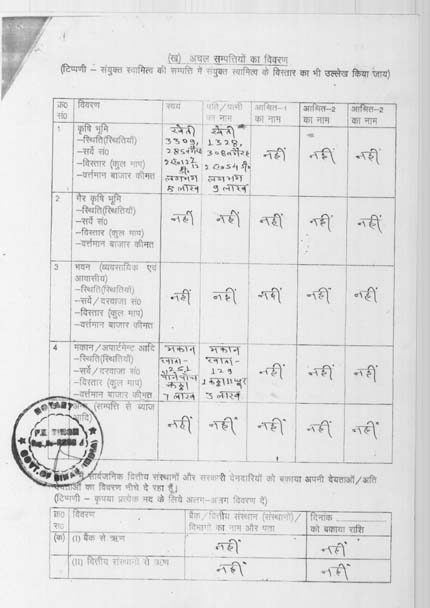 (ख) अचल सम्पत्तियों का विवरण
(टिप्पणी – संयुक्त स्वामित्व की सम्पत्ति में संयुक्त स्वामित्व के विस्तार का भी उल्लेख किया जाय)
क्र0 सं0 विवरण स्वयं पति/पत्नी का नाम आश्रित-1 का नाम आश्रित-2 का नाम आश्रित-2 का नाम
1 कृषि भूमि खेती खेती
–स्थिति(स्थितियाँ) 3309, 1328,
–सर्वे सं0 नहीं नहीं नहीं
–विस्तार (कुल माप)
–वर्त्तमान बाजार कीमत लगभग लगभग
लाख 9 लाख
2 गैर कृषि भूमि
–स्थिति(स्थितियाँ)
–सर्वे सं0 नहीं नहीं नहीं नहीं नहीं
–विस्तार (कुल माप)
–वर्त्तमान बाजार कीमत
3 भवन (व्यवसायिक एवं
आवासीय)
–स्थिति(स्थितियाँ)
–सर्वे/दरवाजा सं0 नहीं नहीं नहीं नहीं नहीं
–विस्तार (कुल माप)
–वर्त्तमान बाजार कीमत
4 मकान/अपार्टमेन्ट आदि मकान मकान
–स्थिति(स्थितियाँ) खाता- खाता-
–सर्वे/दरवाजा सं0 129 नहीं नहीं नहीं
–विस्तार (कुल माप)
–वर्त्तमान बाजार कीमत 7 लाख लाख
(सम्पत्ति से ब्याज
आदि) नहीं नहीं नहीं नहीं नहीं
NOTARY
GOVT. OF BIHAR
सार्वजनिक वित्तीय संस्थानों और सरकारी देनदारियों को बकाया अपनी देयताओं/अति
का विवरण नीचे दे रहा हूँ।
(टिप्पणी – कृपया प्रत्येक मद के लिये अलग-अलग विवरण दें)
क्र0 सं0 विवरण बैंक/वित्तीय संस्थान (संस्थानों)/ विभागों का नाम और पता दिनांक को बकाया राशि
(क) (I) बैंक से ऋण नहीं नहीं
(II) वित्तीय संस्थानों से ऋण नहीं नहीं